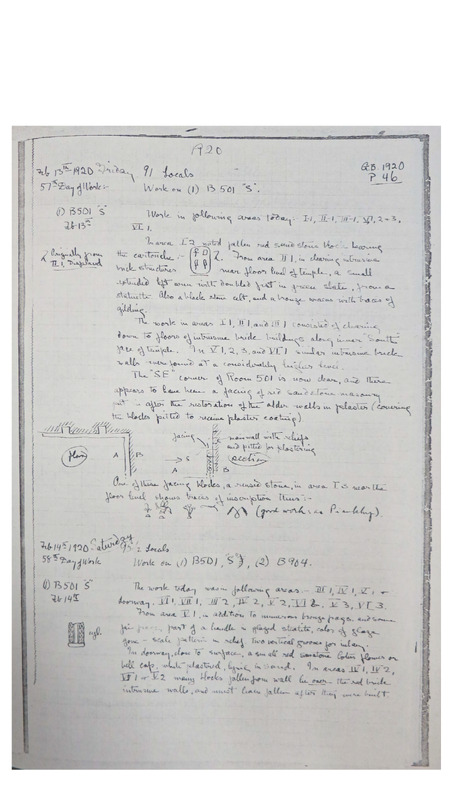 1920
GB 1920
P 46
Feb 13th 1920 Friday 91 Locals
57th Day of Work Work on (1) B 501 "S".
(1) B501 "S"
Feb 13th
Work in following areas today:- I.1, II.1, III.1, 2-3,
VI 1,
In area I.2 noted fallen red sandstone block bearing
the cartouche :- From area III.1, in clearing intrusive
brick structures near floor level of temple, a small
extended left arm with doubled fist in green slate, from a
statuette. Also a black stone celt, and a bronze uraeus with traces of
gilding.
The work in areas I 1, II 1 and III 1 consisted of clearing
down to floors of intrusive brick buildings along inner "South"
face of temple. In V 1, 2, 3, and VI 1 similar intrusive brick
walls were found at a considerably higher level.
The "SE" corner of Room 501 is now clear, and there
appears to have been a facing of red sandstone masonry
put in after the restoration of the older walls in plaster (covering
the blocks pitted to receive plaster coating)
Plan
B
A
S
facing
A
B
main wall with reliefs
and pitted for plastering
Section
One of these facing blocks, a reused stone, in area I near the
floor level shows traces of inscription thus:-
(good work; as Piankhy).
Feb 14th 1920 Saturday Locals
58th Day of Work Work on (1) B501, "S", (2) B904.
(1) B501 "S"
Feb 14th
The work today was in following areas:- III 1, IV 1, V 1,
doorway, VI 1, VII 1, III 2, IV 2, V 2, VI 2, V 3, VI 3.
From area V 1, in addition to numerous bronze and some
part of a handle in glazed steatite, color of glaze
gone - scale pattern in relief, two vertical grooves for inlay.
In doorway, close to surface, a small red sandstone lotus flower or
bell cap, white plastered, lying in sand. In areas III 1, IV 2,
VI 1 & V 2 many blocks fallen from wall lie over the red brick
intrusive walls, and must have fallen after they were built